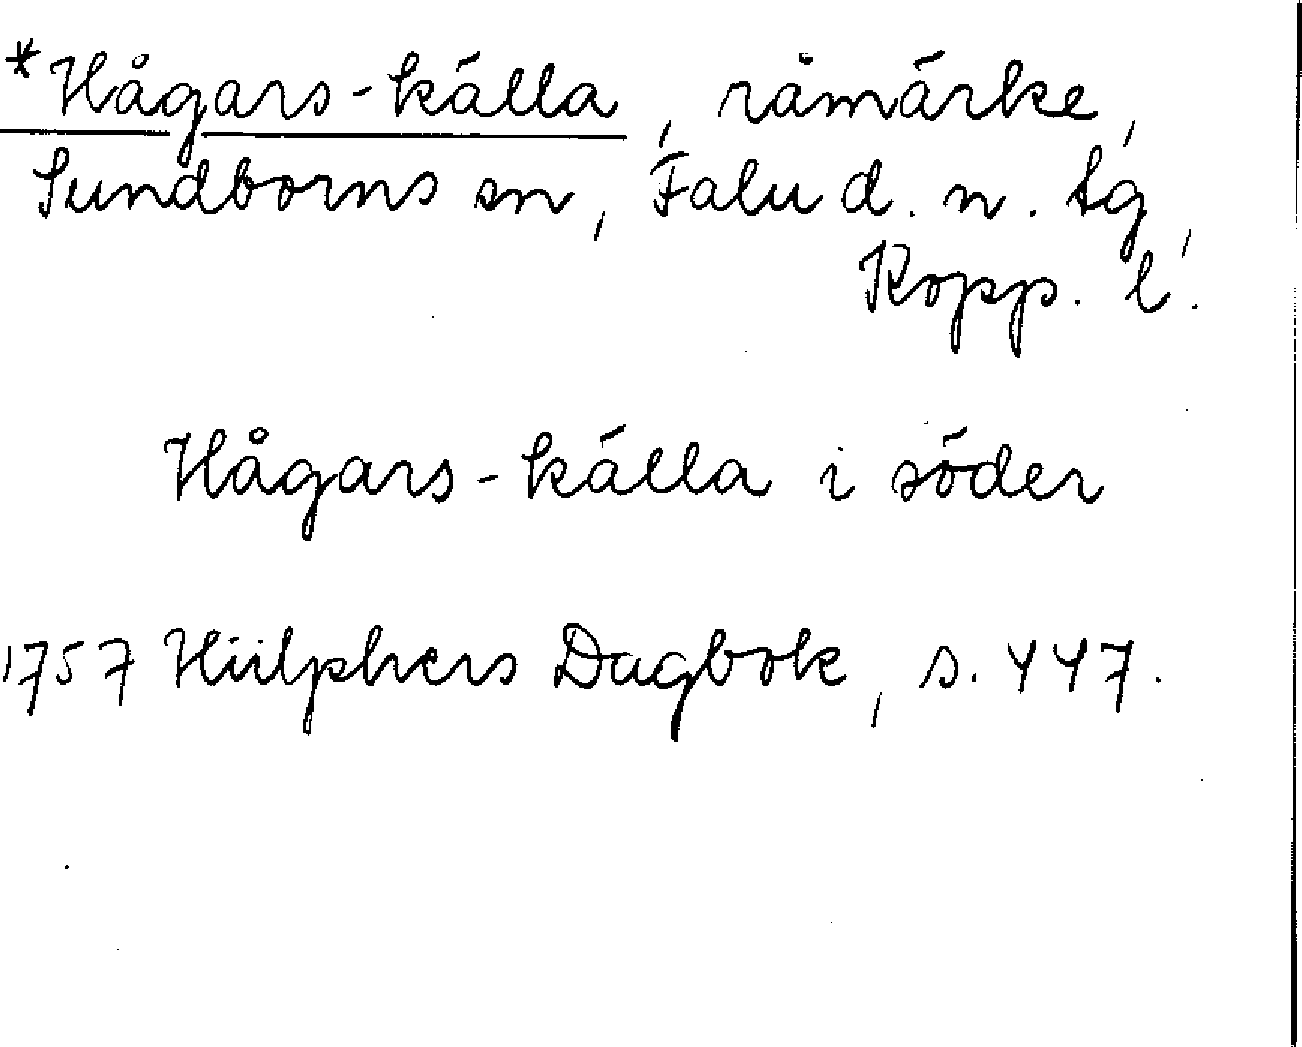 *Hågars-källa, råmärke,
Sundborns sn, Falu d. n. tg,
Kopp. l.
Hågars-källa i söder
1757 Hülphers Dagbok, s. 447.